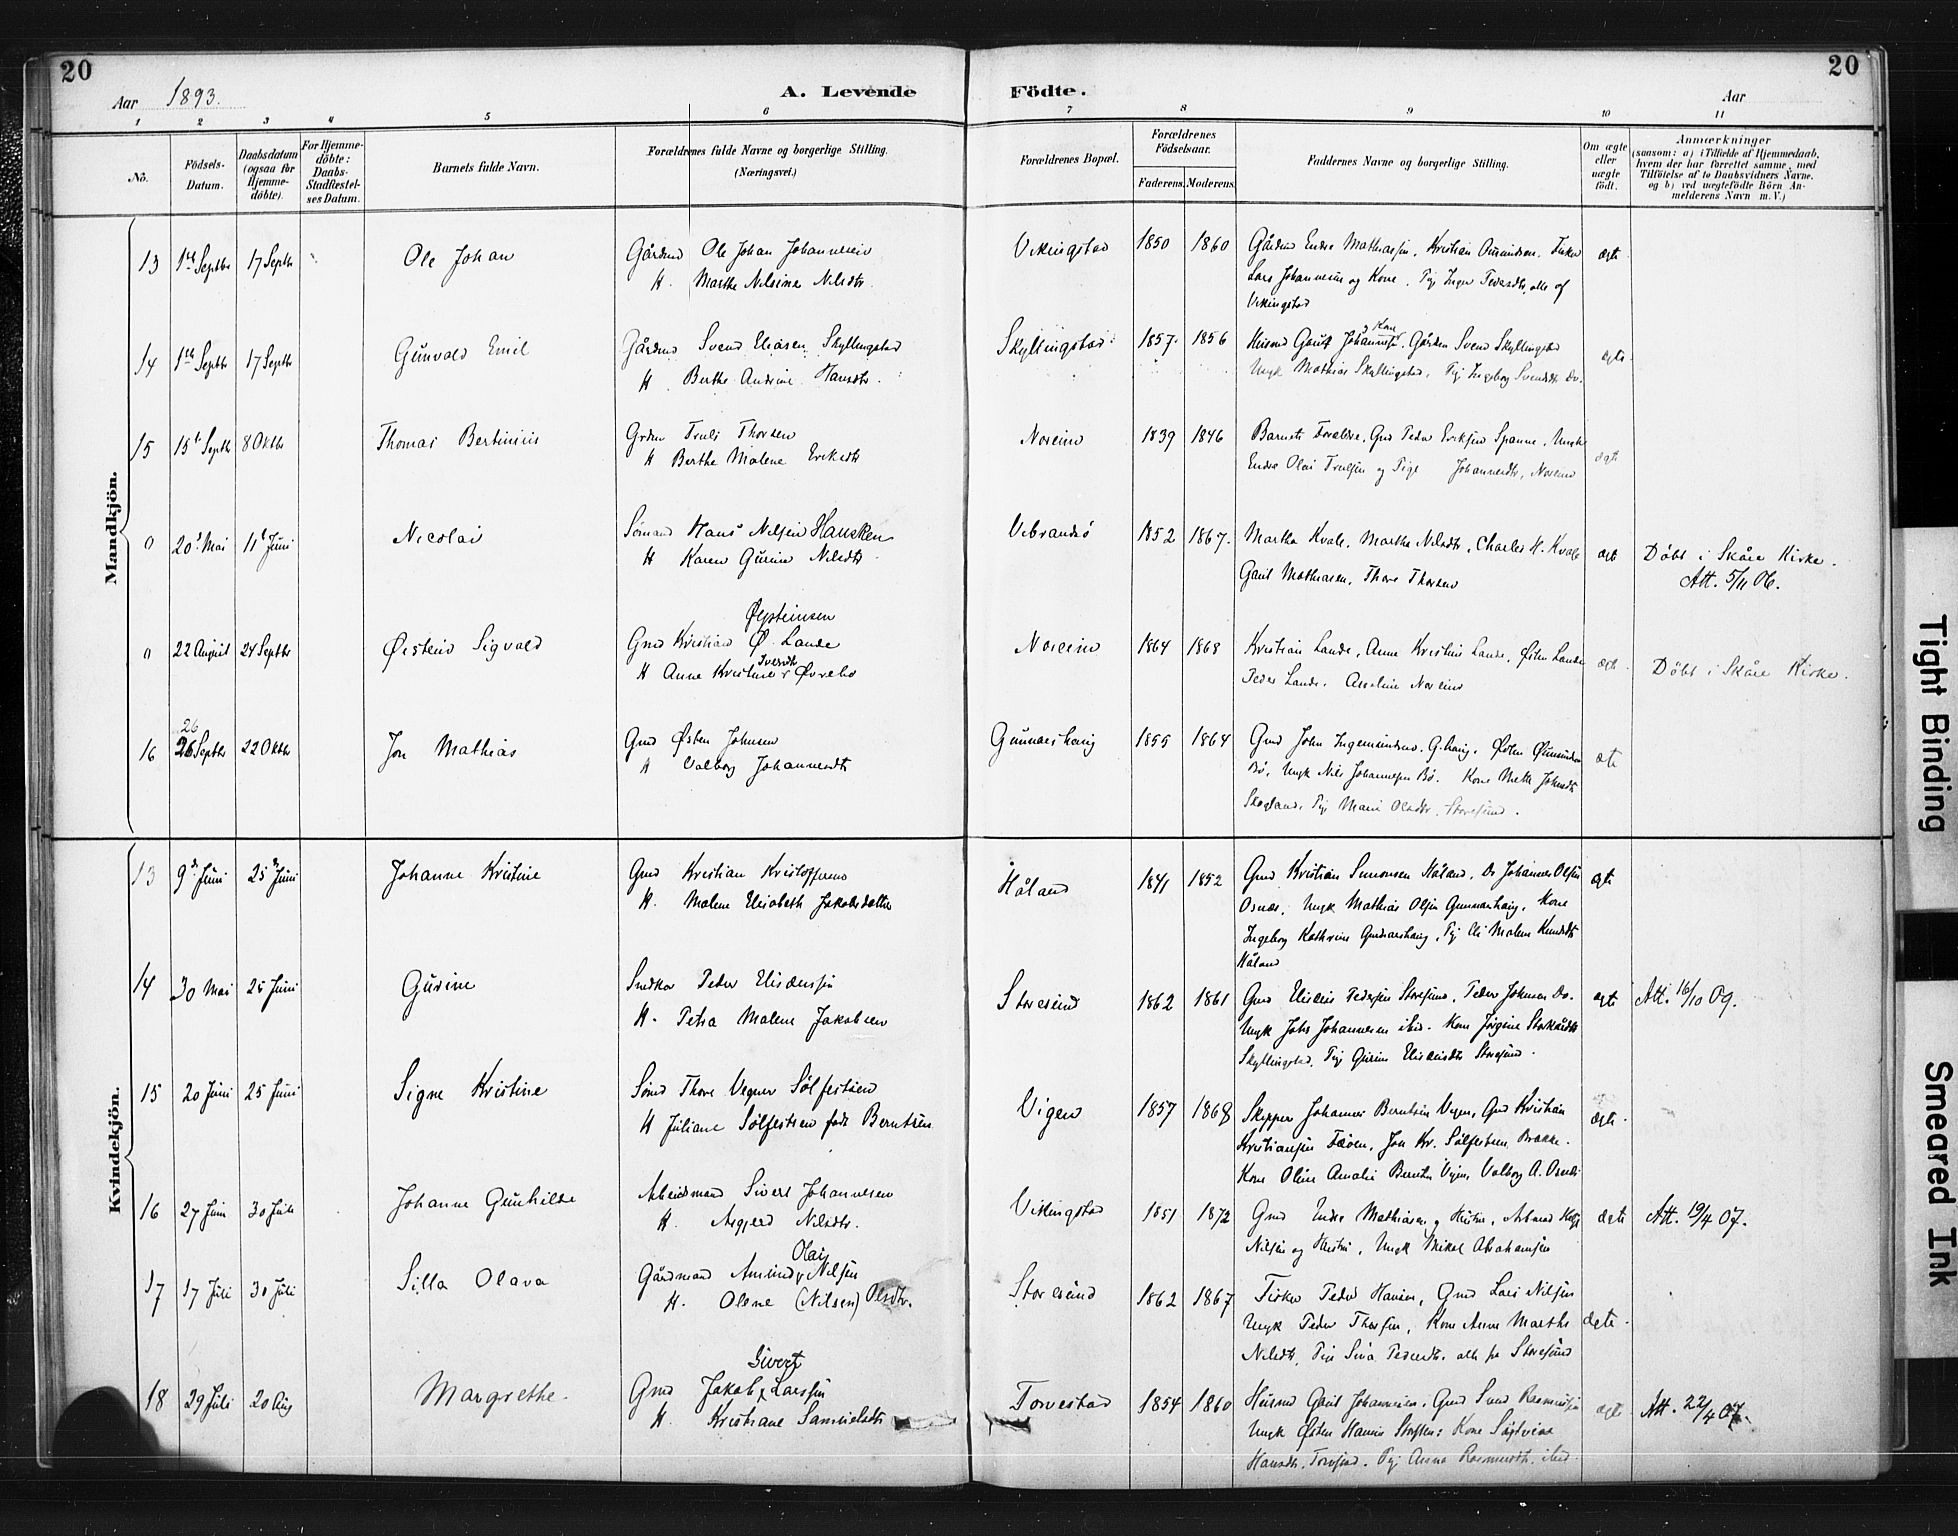 20
20
Aar 1893.
A. Levende Födte.
Aar
1 2 3 4 5 6 7 8 9 10 11
No.
Födsels-Datum.
Daabsdatum (ogsaa for Hjemme-döbte).
For Hjemme-döbte: Daabs-Stadfæstel-ses Datum.
Barnets fulde Navn.
Forældrenes fulde Navne og borgerlige Stilling.
(Næringsvei.)
Forældrenes Bopæl.
Forældrenes Födselsaar.
Faderens. Moderens.
Faddernes Navne og borgerlige Stilling.
Om ægte eller uægte födt.
Anmærkninger
(saasom: a) i Tilfælde af Hjemmedaab, hvem der har forrettet samme, med Tilföielse af to Daabsvidners Navne, og b) ved uægtefödte Börn An-melderens Navn m. V.)
Mandkjön.
13 1ste Septbr 17 Septbr Ole Johan Gårdmd Ole Johan Johannesen Vikingstad 1850 1860 Gårdmd Endre Mathiassen, Kristian Omundsen, Fisker ægte
H. Marthe Nilsine Nilsdtr. Lars Johannesen og Kone, Pige Inger Pedersdtr, alle af
Vikingstad
14 1ste Septbr 17 Septbr Gunvald Emil Gårdmd Svend Eliasen Skyllingstad Skyllingstad 1857 1856 Husmd Gaut Johannesen og Kone, Gårdm Svend Skyllingstad ægte
H. Berthe Andrine Hansdtr. Ungk Mathias Skyllingstad, Pig Ingeborg Svendsdtr Do.
15 15de Septbr 8 Oktbr Thomas Bertinius Grdm Truls Thorsen Noreim 1839 1846 Barnets Forældre, Gmd Peder Eriksen Spanne, Ungk ægte
H Berthe Malene Eriksdtr Endre Olai Trulsen og Pige Johannesdtr, Noreim
0 20de Mai 11te Juni Nicolai Sømand Hans Nilsen Hansken Vibrandsø 1852 1867. Martha Kvale, Marthe Nilsdtr, Charles H. Kvale ægte Döbt i Skåre Kirke.
H Karen Gurine Nilsdtr Gaut Mathiasen, Thore Thorsen Att. 5/11 06.
Øysteinsen
0 22 August 24 Septbr Østein Sigvald Gmd Kristian Ø. Lande Noreim 1864 1868 Kristian Lande, Anne Kristine Lande, Østen Lande ægte Döbt i Skåre Kirke.
H Anne Kristine Iversdtr Øvrebø Peder Lande, Anseline Noreim
26
16 26 Septbr 22 Oktbr Jon Mathias Gmd Østen Johnsen Gunnarshaug 1855 1864 Gmd John Ingemundsen G.haug, Østen Omundsen ægte
H Valborg Johannesdtr Bø, Ungk Nils Johannesen Bø. Kone Mette Johnsdtr
Skogland, Pig Marie Olsdtr, Storesund.
Kvindekjön.
13 9de Juni 25de Juni Johanne Kristine Gmd Kristian Kristoffersen Håland 1841 1852 Gmd Kristian Simonsen Håland, Do Johannes Olsen ægte
H. Malene Elisabeth Jakobsdatter Osnæs, Ungk Mathias Olsen Gunnarshaug, Kone
Ingeborg Kathrine Gunnarshaug, Pig Eli Malene Knudsdtr
Håland
14 30 Mai 25 Juni Gurine Snedker Peder Elisæussen Storesund 1862 1861 Gmd Elisæus Pedersen Storesund, Peder Johnsen Do. ægte Att. 16/10 09.
H. Petra Malene Jakobsen Ungk Johs Johannesen ibid. Kone Jørgine
Skyllingstad, Pige Gurine Elisæusdtr Storesund.
15 20 Juni 25 Juni Signe Kristine Sømd Thore Vegner Sölfestsen Vigen 1857 1868 Skipper Johannes Berntsen Vigen, Gmd Kristian ægte
H Juliane Sölfestsen født Berntsen Kristiansen Fæøen, Jon Kr. Sölfestsen Brække.
Kone Oline Amalie Berntsen Vigen, Valborg A. Osnæs
16 27 Juni 30 Juli Johanne Gunhilde Arbeidsmand Sivert Johannesen Vikingstad 1851 1872 Gmd Endre Mathiasen og Hustru, Arbmd Helge ægte Att. 19/4 07.
H. Asgjerd Nilsdtr. Nilsen og Hustru, Ungk Mikal Abrahamsen
Olai
17 17 Juli 30 Juli Silla Olava Gårdmand Amund Nilsen Storesund 1862 1867 Fisker Peder Hansen, Gmd Lars Nilsen ægte
H. Olene (Nilsen) Olsdtr. Ungk Peder Thorsen, Kone Anne Marthe
Nilsdtr, Pige Sina Pedersdtr. alle på Storesund
Sivert
18 29 Juli 20 Aug Margrethe. Gmd Jakob Larsen Torvestad 1854 1860 Husmd Gaut Johannesen, Gmd Svend Rasmussen ægte Att. 22/4 07.
H. Kristiane Samuelsdtr Ungk Østen Hansen Storesund: Kone
Hansdtr, Torvestad. Pige Anna Rasmusdtr. ibid
Tight Binding
Smeared Ink